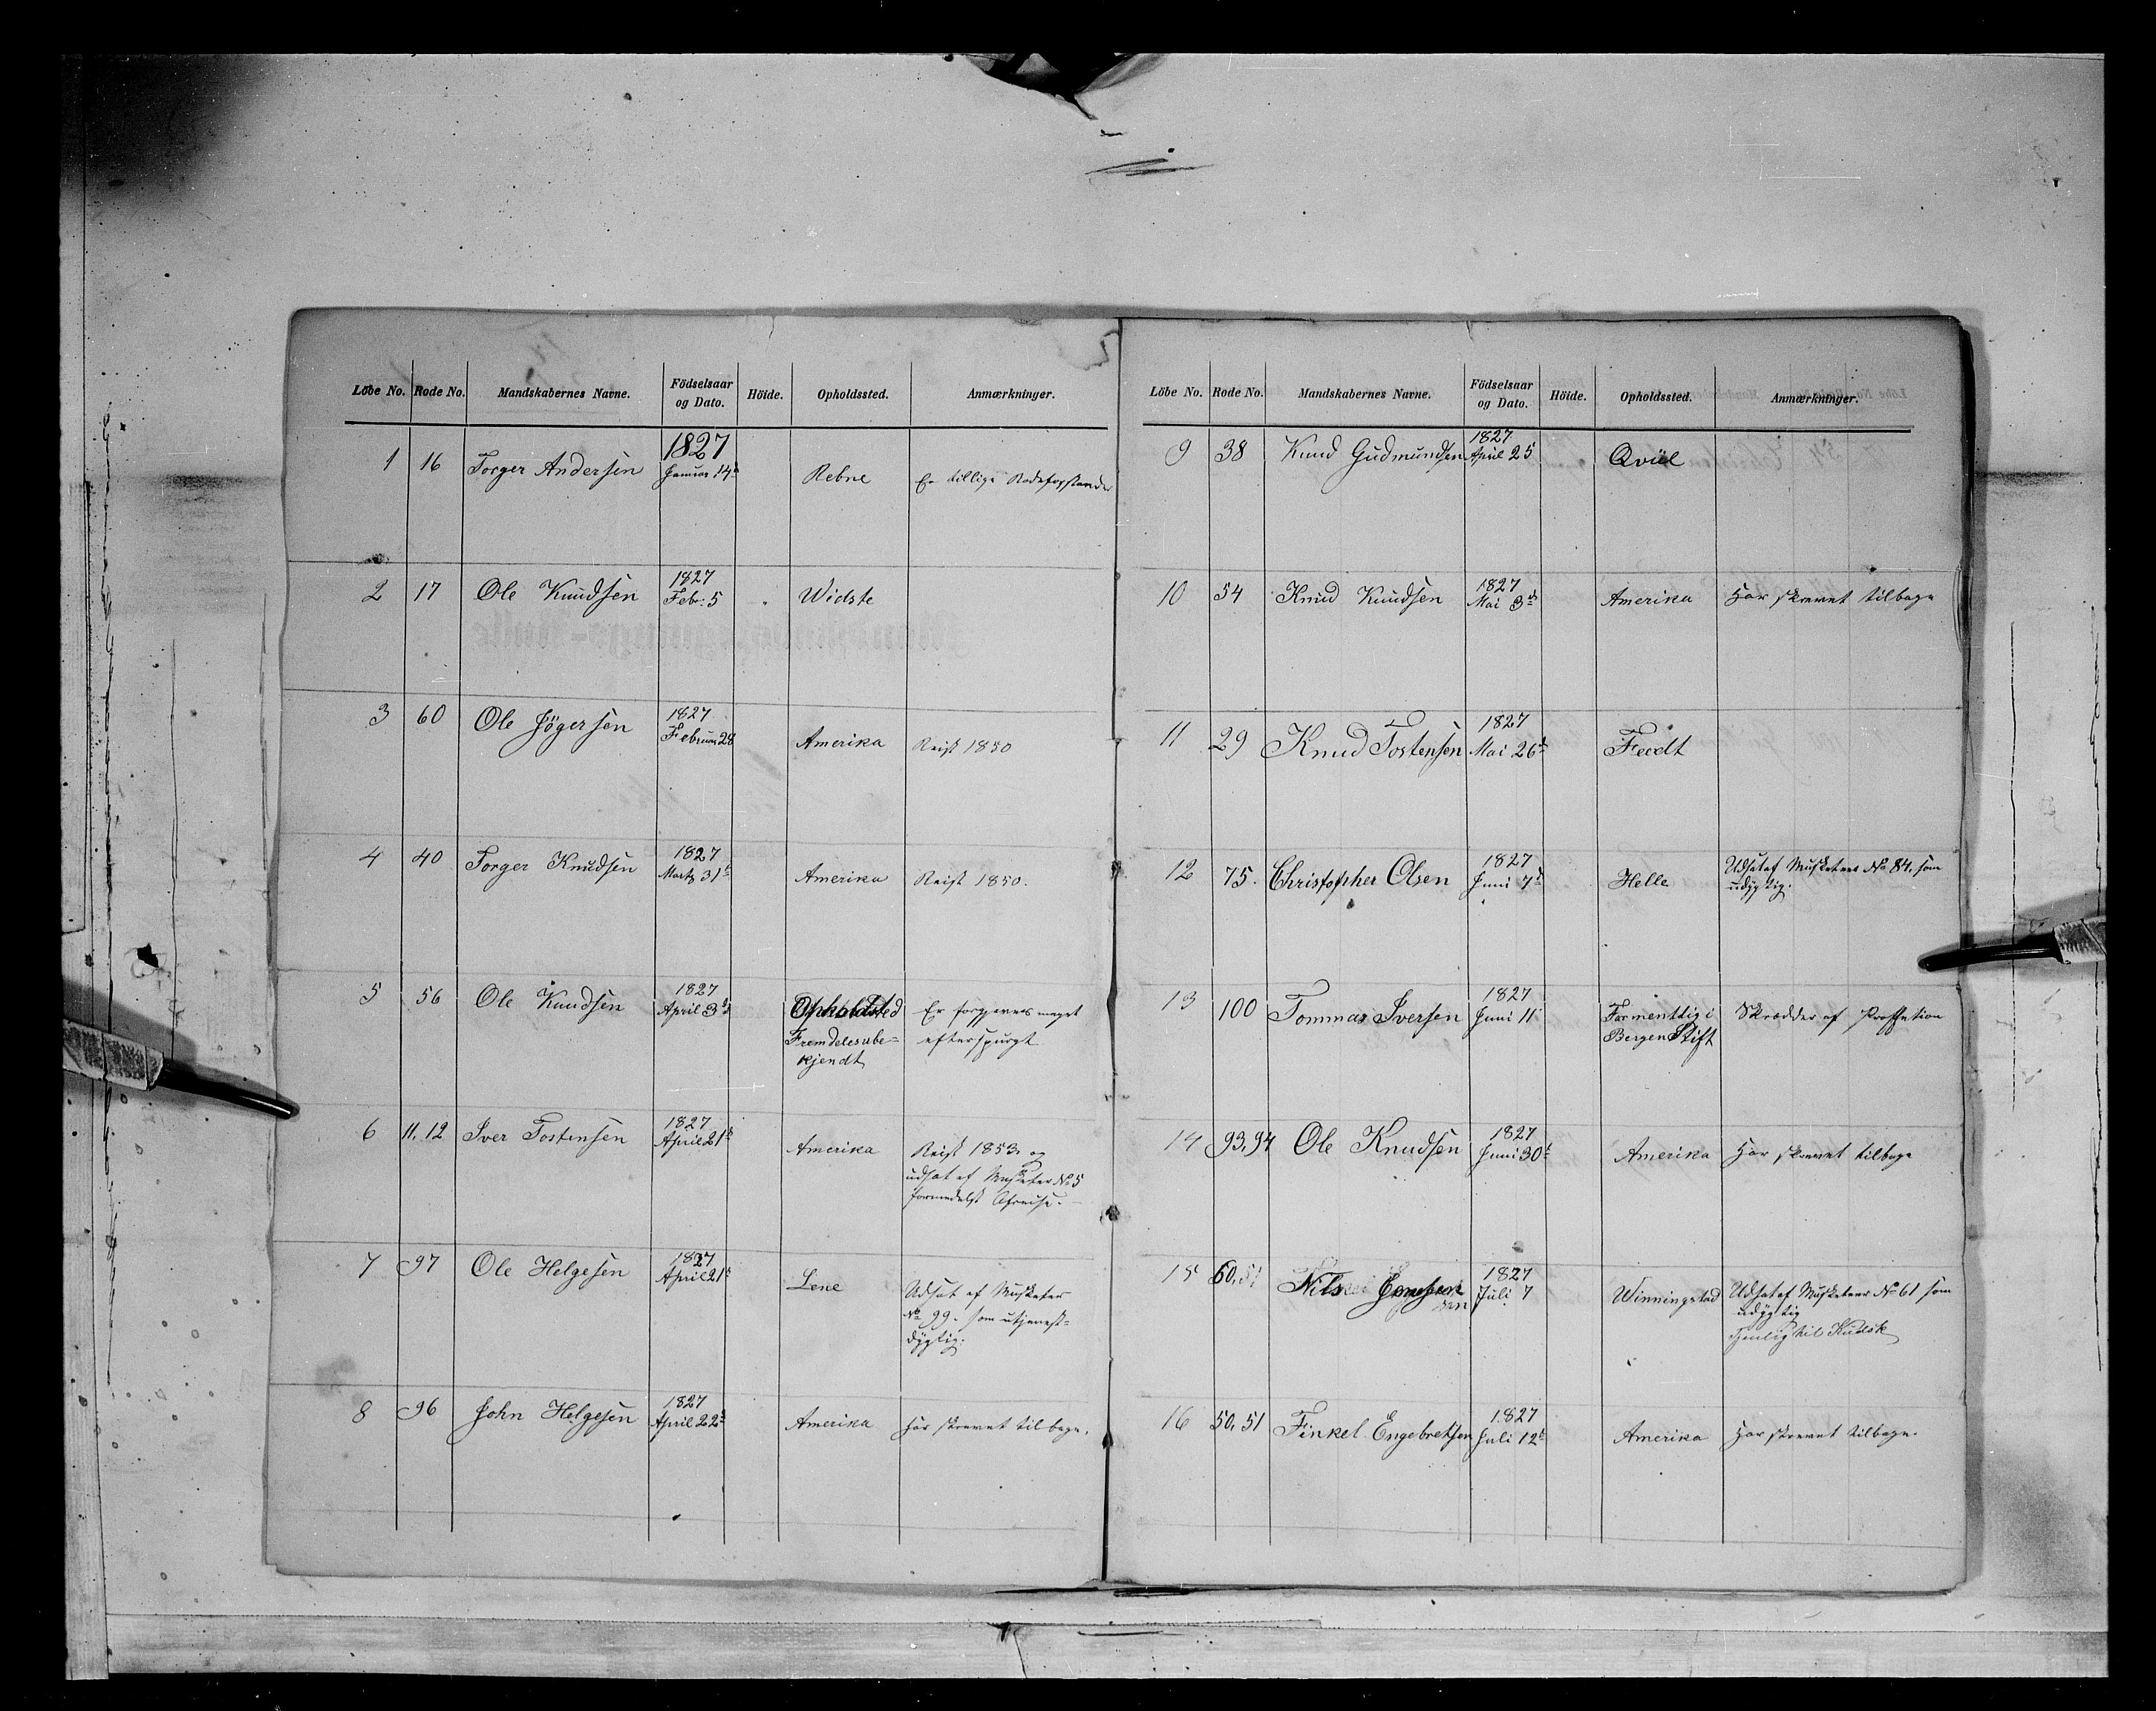 Löbe No. Rode No. Mandskabernes Navne. Födselsaar og Dato. Höide. Opholdssted. Anmærkninger.
1 16 Torger Andersen 1827 Januar 14de Rebne Er tillige Rodeforstander
2 17 Ole Knudsen 1827 Febr. 5 Widste
3 60 Ole Jögersen 1827 Februar 28 Amerika Reist 1850
4 40 Torger Knudsen 1827 Marts 31te Amerika Reist 1850.
5 56 Ole Knudsen 1827 April 3de Opholdsted Er forgjeves meget
Fremdeles ube= efterspurgt
kjendt
6 11, 12 Iver Tostensen 1827 April 21de Amerika Reist 1853 og
udsat af Musketer No 5
formedelst Afreise.
7 97 Ole Helgesen 1827 April 21de Lene Udsat af Musketer
No 99. som utjenest=
dygtig.
8 96 John Helgesen 1827 April 22de Amerika Har skrevet tilbage.
Löbe No. Rode No. Mandskabernes Navne. Födselsaar og Dato. Höide. Opholdssted. Anmærkninger.
9 38 Knud Gudmundsen 1827 April 25 Qviel
10 54 Knud Knudsen 1827 Mai 3de Amerika Har skrevet tilbage
11 29 Knud Tostensen 1827 Mai 26de Feedt
12 75. Christopher Olsen 1827 Juni 7de Helle Udsat af Musketeer No 84, som
udygtig.
13 100 Tommas Iversen 1827 Juni 11 Formenttlig i Skrædder af Proffetion
Bergen Stift
14 93, 94 Ole Knudsen 1827 Juni 30te Amerika Har skrevet tilbage
15 60, 51 Nils 1827 Juli 7 Winningstad Udsat af Musketeer No 61 som
udygtig
tjenlig til Kudsk
16 50, 51 Finkel Engebretsen 1827 Juli 12te Amerika Har skrevet tilbage.